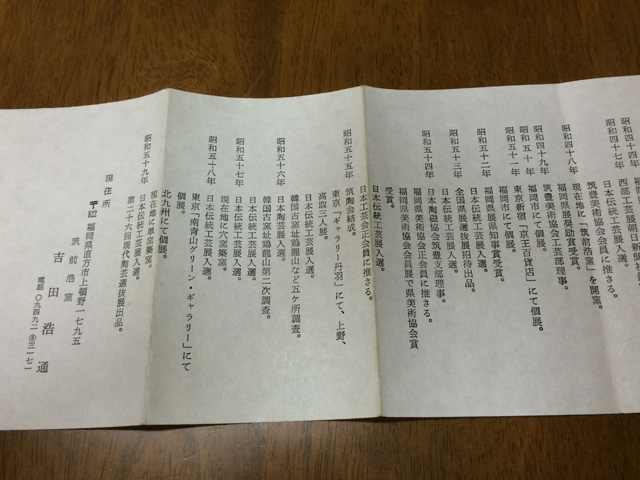 昭和四十四年
西部工芸展朝日新聞社
昭和四十七年
日本伝統工芸展入選。
筑豊美術協会会員に推さる。
現在地に「筑前浩窯」を開窯。
昭和四十八年
福岡県展奨励賞受賞。
筑豊美術協会工芸部理事。
昭和四十九年
福岡市にて個展。
昭和五十年
東京新宿「京王百貨店」にて個展。
昭和五十一年
福岡市にて個展。
福岡県展県知事賞受賞。
昭和五十二年
日本伝統工芸展入選。
全国県展選抜展招待出品。
昭和五十三年
日本伝統工芸展入選。
日本陶磁協会筑豊支部理事。
昭和五十四年
福岡県美術協会正会員に推さる。
福岡県美術協会会員展で県美術協会賞
受賞。
日本工芸会正会員に推さる。
昭和五十五年
筑陶会結成。
東京「ギャラリー丹羽」にて、上野、
高取三人展。
日本伝統工芸展入選。
昭和五十六年
日本陶芸展入選。
韓国古窯址鶏龍山など五ケ所調査。
韓国古窯址鶏龍山第二次調査。
昭和五十七年
日本伝統工芸展入選。
日本伝統工芸展入選。
昭和五十八年
現在地に穴窯築窯。
東京「南青山グリーン・ギャラリー」にて
個展。
北九州にて個展。
現在地に単室窯築窯。
昭和五十九年
日本伝統工芸展入選。
第二十六回現代陶芸選抜展出品。
現住所
〒822 福岡県直方市上頓野一七九五
筑前浩窯
吉田浩通
電話〇九四九二